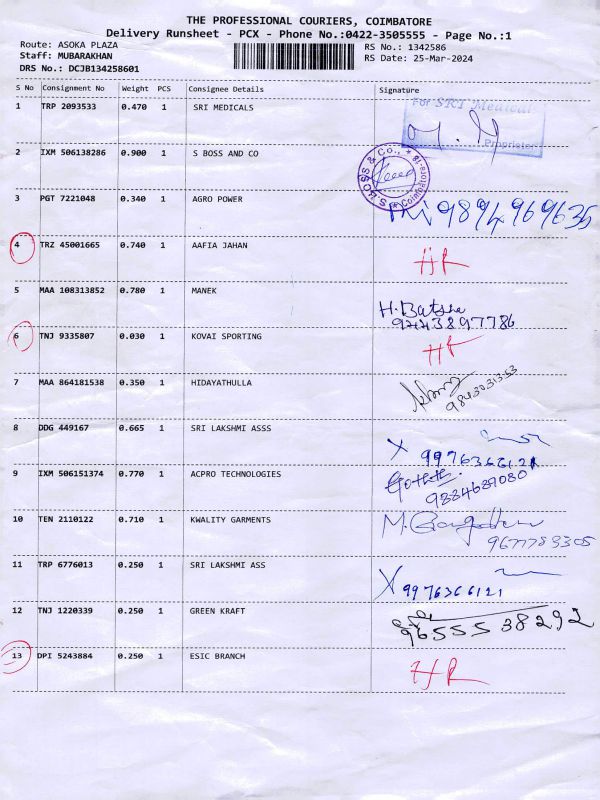 THE PROFESSIONAL COURIERS, COIMBATORE
Delivery Runsheet - PCX - Phone No.:0422-3505555 - Page No.:1
Route: ASOKA PLAZA
Staff: MUBARAKHAN
DRS No.: DCJB134258601
RS No.: 1342586
RS Date: 25-Mar-2024
S No Consignment No Weight PCS Consignee Details Signature
1 TRP 2093533 0.470 1 SRI MEDICALS
For SRI Medical
Proprietor
2 IXM 506138286 0.900 1 S BOSS AND CO
S.BOSS & Co., * Coimbatore-18 *
3 PGT 7221048 0.340 1 AGRO POWER
9894969635
4 TRZ 45001665 0.740 1 AAFIA JAHAN
HR
5 MAA 108313852 0.780 1 MANEK
H.Batsha
9443897786
6 TNJ 9335807 0.030 1 KOVAI SPORTING
HR
7 MAA 864181538 0.350 1 HIDAYATHULLA
8 DDG 449167 0.665 1 SRI LAKSHMI ASSS
X 9976366121
9 IXM 506151374 0.770 1 ACPRO TECHNOLOGIES
10 TEN 2110122 0.710 1 KWALITY GARMENTS
11 TRP 6776013 0.250 1 SRI LAKSHMI ASS
X 9976366121
12 TNJ 1220339 0.250 1 GREEN KRAFT
9655538292
13 DPI 5243884 0.250 1 ESIC BRANCH
HR